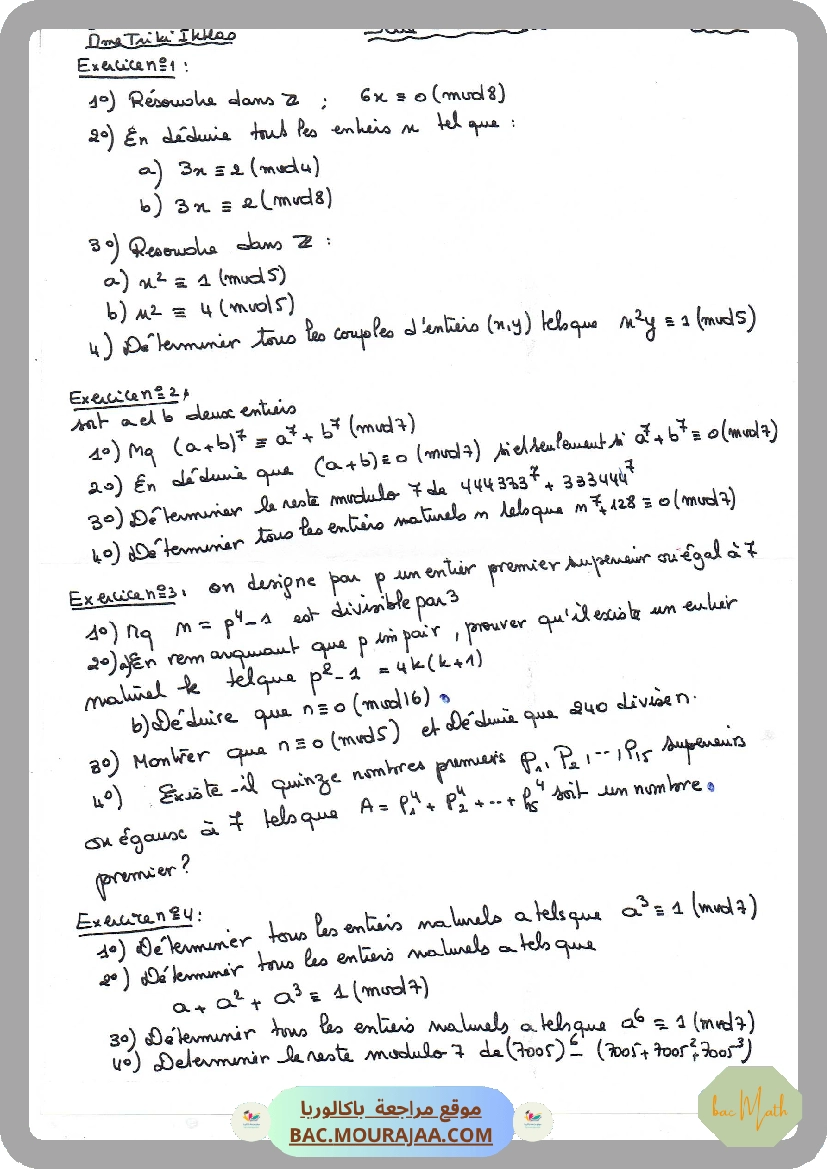 Dme Triki Ikhlas
Exercice n°1 :
1°) Résoudre dans ℤ ; 6x ≡ 0 (mod 8)
2°) En déduire tout les entiers x tel que :
a) 3x ≡ 2 (mod 4)
b) 3x ≡ 2 (mod 8)
3°) Resoudre dans ℤ :
a) x² ≡ 1 (mod 5)
b) x² ≡ 4 (mod 5)
4) Déterminer tous les couples d'entiers (x,y) tels que x²y ≡ 1 (mod 5)
Exercice n°2 :
soit a et b deux entiers
1°) Mq (a+b)⁷ ≡ a⁷ + b⁷ (mod 7)
2°) En déduire que (a+b) ≡ 0 (mod 7) si et seulement si a⁷ + b⁷ ≡ 0 (mod 7)
3°) Déterminer le reste modulo 7 de 444333⁷ + 333444⁷
4°) Déterminer tous les entiers naturels n tels que n⁷ + 128 ≡ 0 (mod 7)
Exercice n°3 : on designe par p un entier premier superieur ou égal à 7
1°) Mq n = p⁴ - 1 est divisible par 3
2°) a) En remarquant que p impair, prouver qu'il existe un entier
naturel k tel que p² - 1 = 4k(k+1)
b) Déduire que n ≡ 0 (mod 16).
3°) Montrer que n ≡ 0 (mod 5) et Déduire que 240 divise n.
4°) Existe-il quinze nombres premiers P₁, P₂, ..., P₁₅ superieurs
ou égaux à 7 tels que A = P₁⁴ + P₂⁴ + ... + P₁₅⁴ soit un nombre
premier ?
Exercice n°4 :
1°) Déterminer tous les entiers naturels a tels que a³ ≡ 1 (mod 7)
2°) Déterminer tous les entiers naturels a tels que
a + a² + a³ ≡ 1 (mod 7)
3°) Déterminer tous les entiers naturels a tels que a⁶ ≡ 1 (mod 7)
4°) Determiner le reste modulo 7 de (7005)⁶ - (7005 + 7005² + 7005³)
موقع مراجعة باكالوريا
BAC.MOURAJAA.COM
bac Math